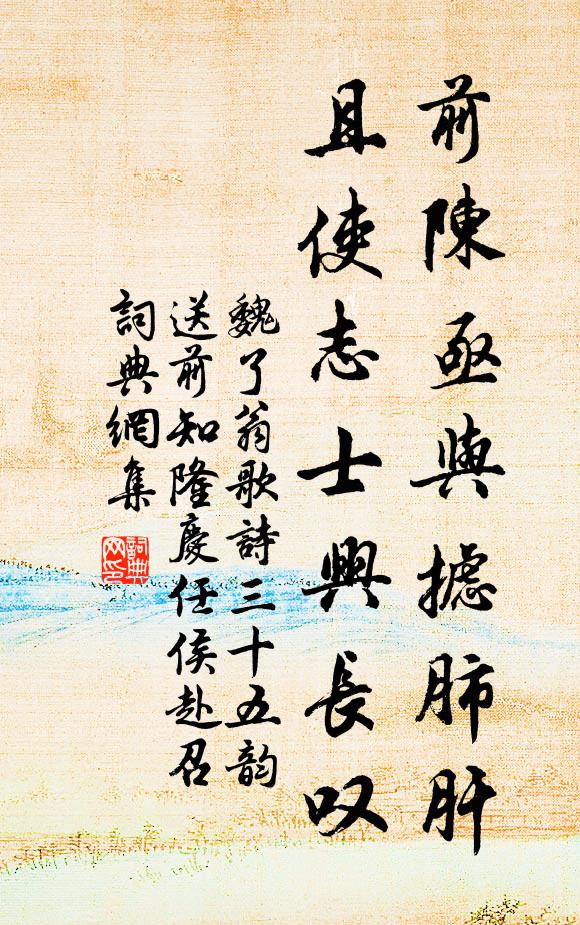 前陳亟與攄肺肝
且使志士興長叹
魏了翁歌詩三十五韵
送前知隆慶任侯赴召
詞典網集
詞典
网印